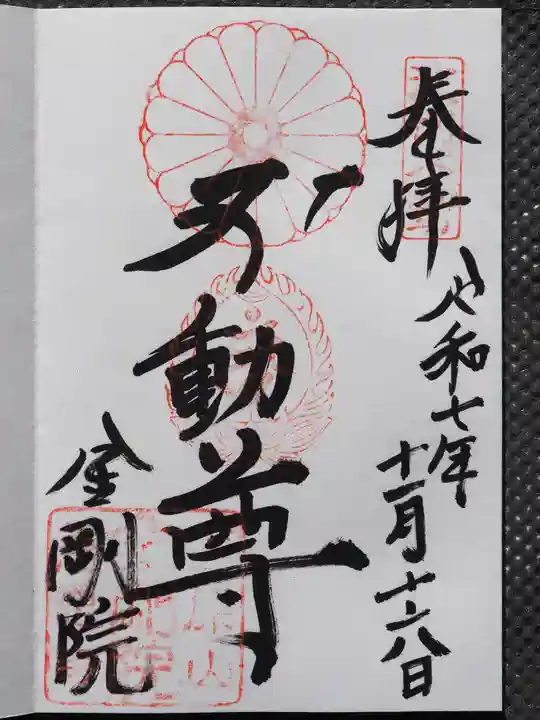 奉拝
令和七年
十一月十八日
不動尊
金剛院